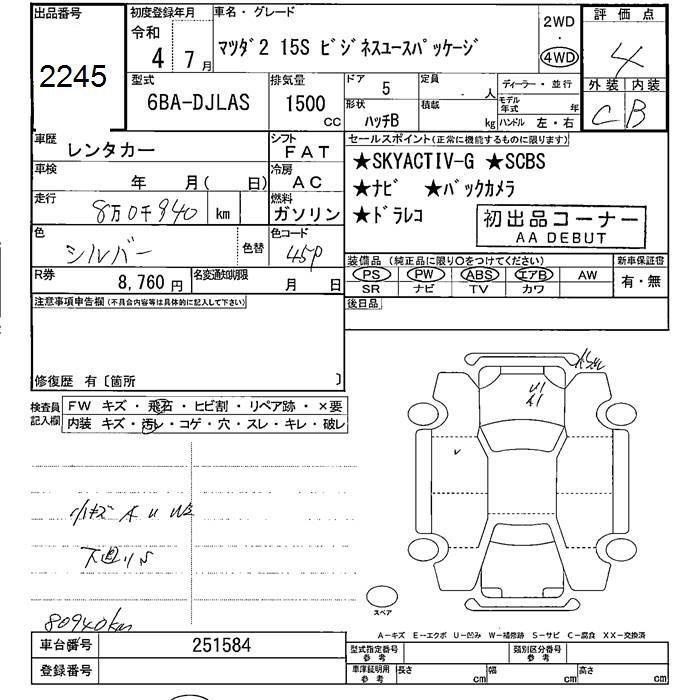 出品番号 初度登録年月 車名・グレード 2WD 評価点
2245 令和 4 7月 マツダ2 15S ビジネスユースパッケージ 4WD 4
型式 排気量 ドア 定員 ディーラー・並行 外装 内装
6BA-DJLAS 1500 cc 5 人 モデル年式 年 C B
形状 積載
ハッチB kg ハンドル 左・右
車歴 レンタカー シフト FAT セールスポイント(正常に機能するものに限ります)
車検 年 月( 日) 冷房 AC ★SKYACTIV-G ★SCBS
走行 8万0千940 km 燃料 ガソリン ★ナビ ★バックカメラ
★ドラレコ 初出品コーナー
AA DEBUT
色 シルバー 色替 色コード 45P
装備品(純正品に限り○をつけてください) 新車保証書
R券 8,760円 名変通知期限 月 日 PS PW ABS エアB AW 有・無
SR ナビ TV カワ
注意事項申告欄(不具合内容等は具体的に記入して下さい) 後日品
修復歴 有〔箇所 〕
検査員記入欄 FW キズ・飛石・ヒビ割・リペア跡・×要
内装 キズ・汚レ・コゲ・穴・スレ・キレ・破レ
U1
A1
小キズ A U W2
下廻りS
80940km
スペア
A-キズ E-エクボ U-凹み W-補修跡 S-サビ C-腐食 XX-交換済
車台番号 251584 型式指定番号 参考 類別区分番号 参考
登録番号 車庫証明用 参考 長さ cm 幅 cm 高さ cm